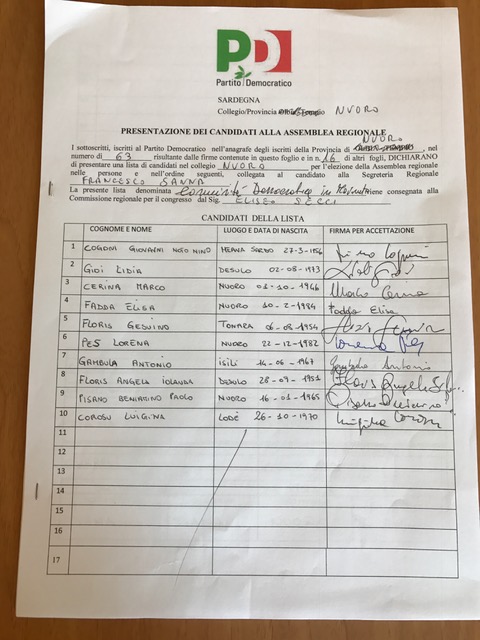 PD
Partito Democratico
SARDEGNA
Collegio/Provincia NUORO
PRESENTAZIONE DEI CANDIDATI ALLA ASSEMBLEA REGIONALE
NUORO
I sottoscritti, iscritti al Partito Democratico nell'anagrafe degli iscritti della Provincia di , nel
numero di 63 risultante dalle firme contenute in questo foglio e in n. 16 di altri fogli, DICHIARANO
di presentare una lista di candidati nel collegio NUORO per l'elezione della Assemblea regionale
nelle persone e nell'ordine seguenti, collegata al candidato alla Segreteria Regionale
FRANCESCO SANNA
La presente lista denominata Comunità Democratica in consegnata alla
Commissione regionale per il congresso dal Sig. ELISEO SECCI
CANDIDATI DELLA LISTA
COGNOME E NOME LUOGO E DATA DI NASCITA FIRMA PER ACCETTAZIONE
1 GIOVANNI NOTO NINO 27-3-1956
2 GIOI LIDIA DESULO 02-08-1973
3 CERINA MARCO NUORO 01-10-1946 Marco Cerina
4 FADDA ELISA NUORO 10-2-1984 Fadda Elisa
5 FLORIS GESUINO TONARA 06-08-1954
6 PES LORENA NUORO 22-12-1982 Lorena Pes
7 GAMBULA ANTONIO ISILI 14-06-1967 Gambula Antonio
8 FLORIS ANGELA IOLANDA DESULO 28-09-1951
9 PISANO BENIAMINO PAOLO NUORO 16-01-1965
10 COROSU LUIGINA LODÈ 26-10-1970
11
12
13
14
15
16
17